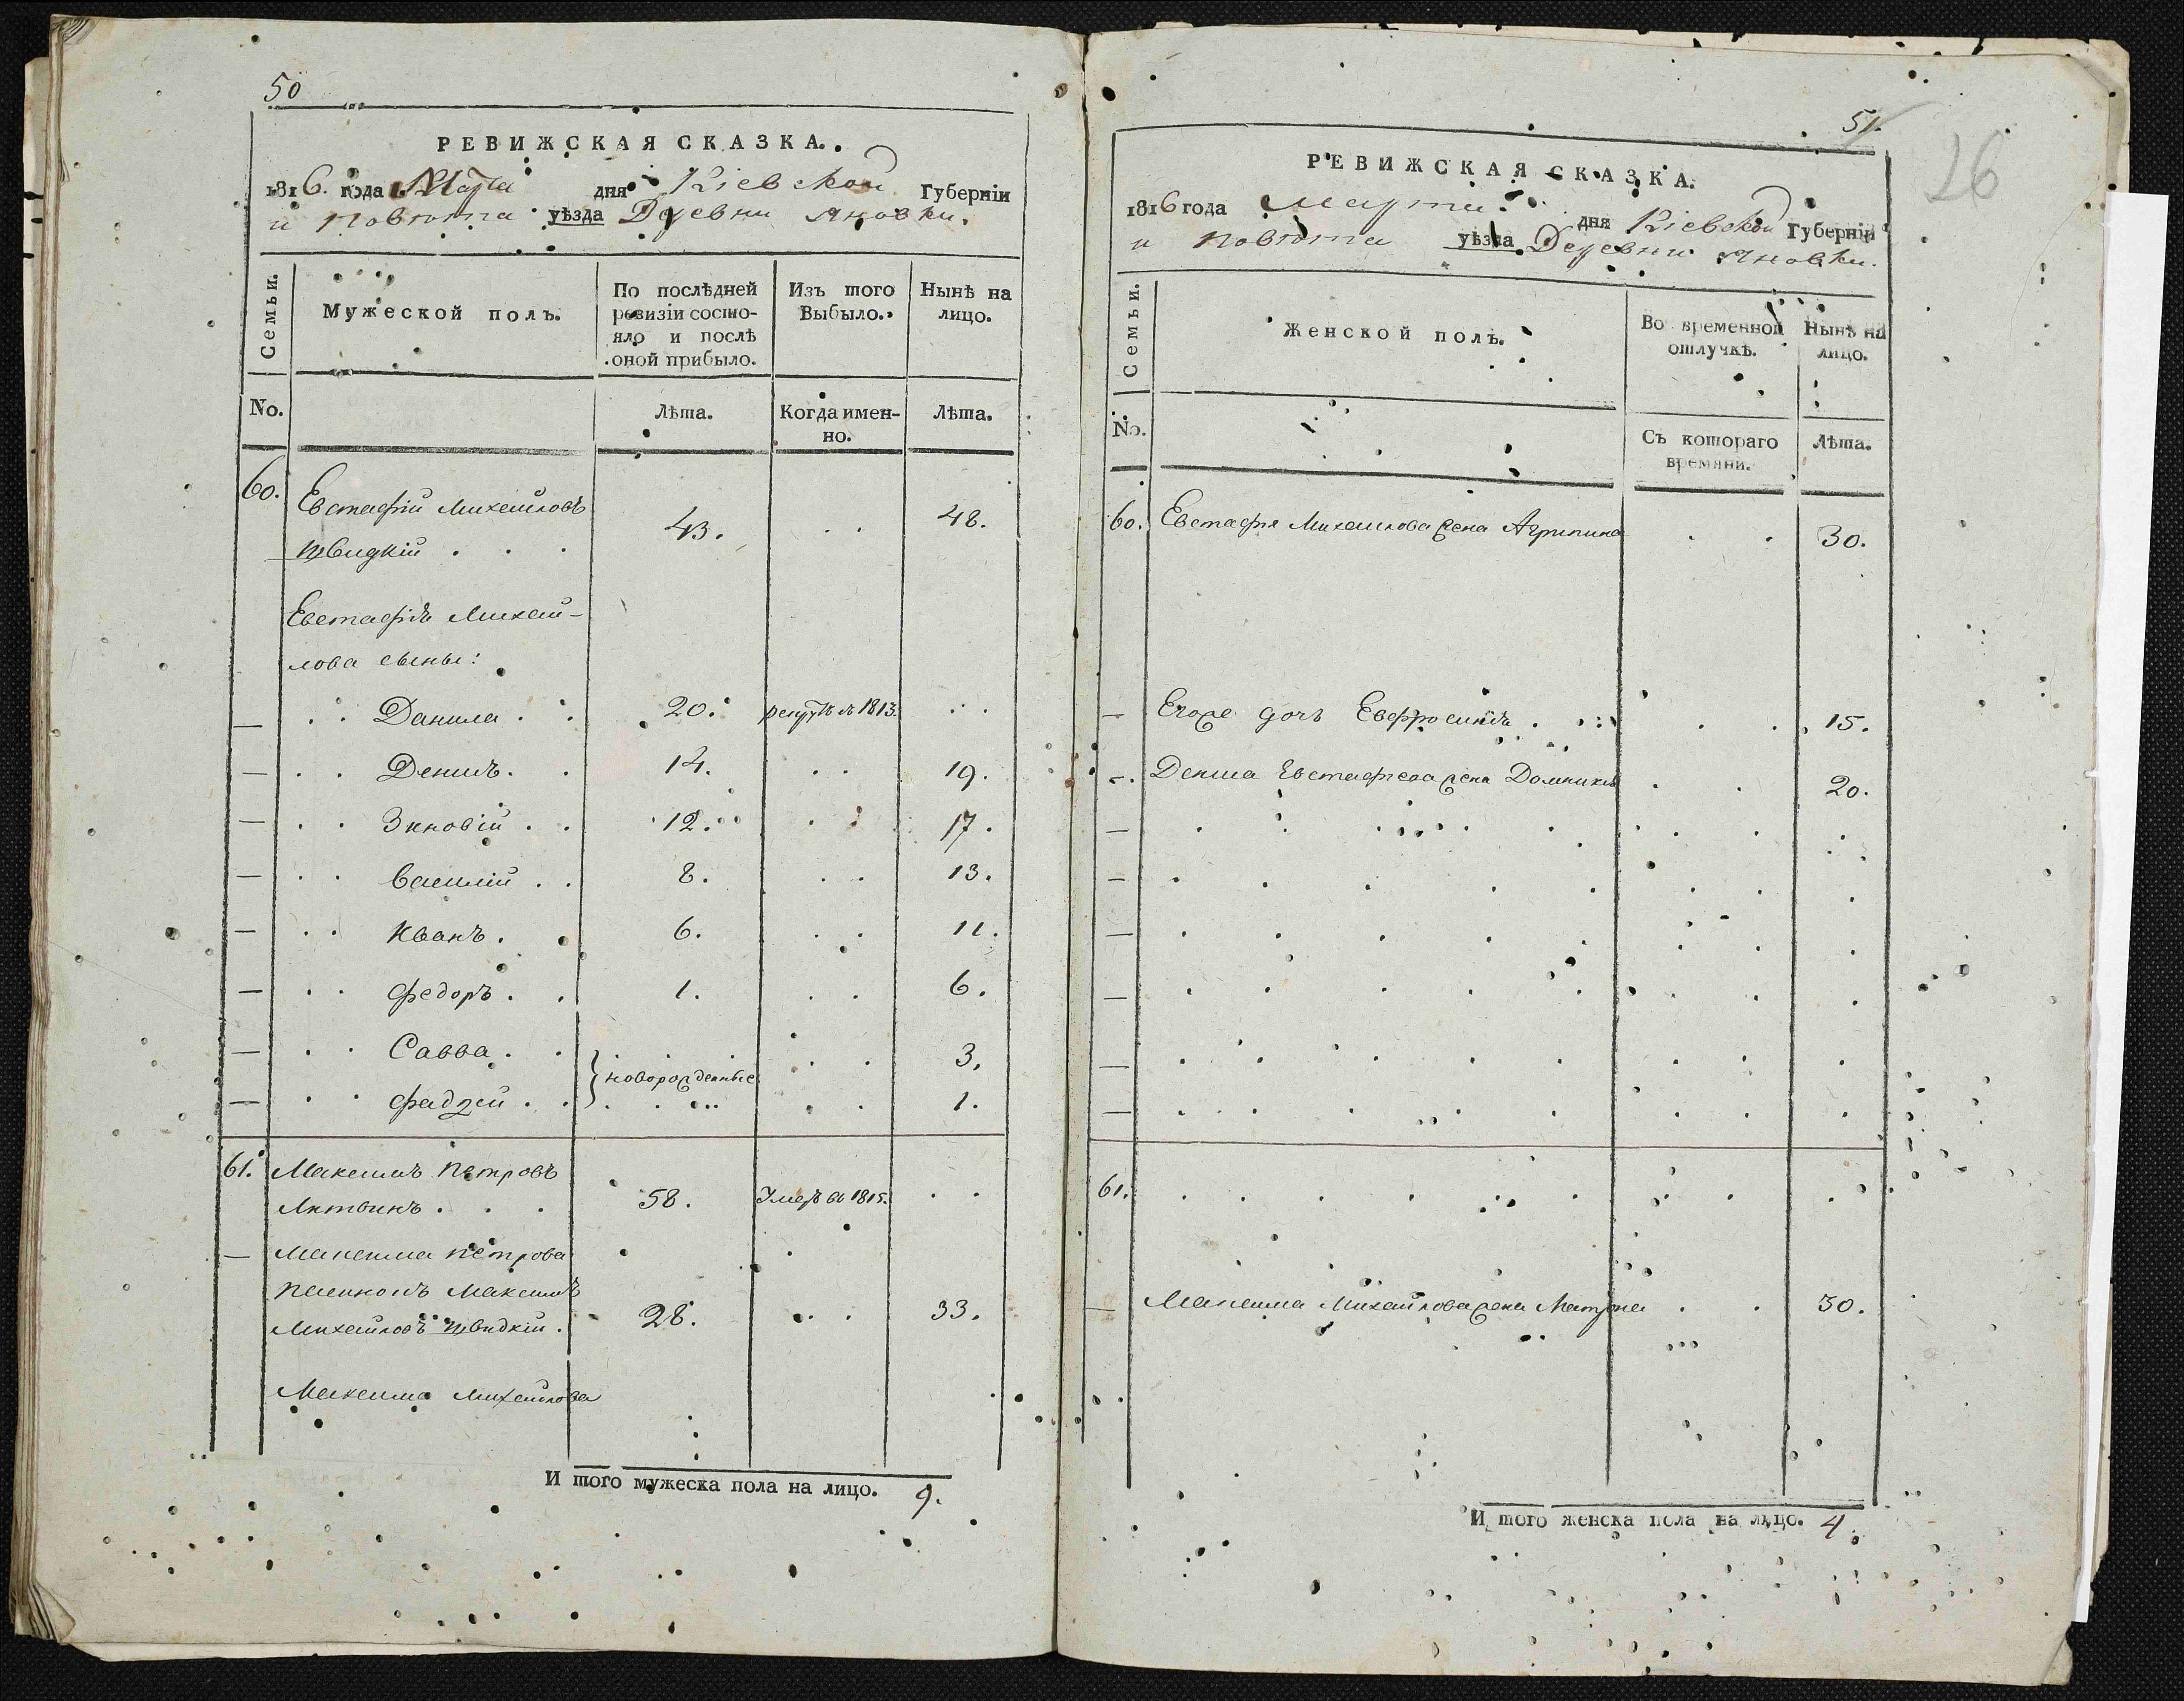 50
РЕВИЖСКАЯ СКАЗКА.
1816. года Марта дня Кіевской Губерніи
и Повѣта уѣзда Деревни Яновки.
Семьи.
Мужеской полъ.
По послѣдней ревизіи состояло и послѣ оной прибыло.
Изъ того Выбыло.
Нынѣ на лицо.
No.
Лѣта.
Когда именно.
Лѣта.
60. Евстафій Михайловъ
Швидкій . . . 43. . . 48.
Евстафія Михай-
лова сыны:
— . . Данила . . 20. рекрутъ въ 1813. . .
— . . Денисъ . . 14. . . 19.
— . . Зиновій . . 12. . . 17.
— . . Василій . . 8. . . 13.
— . . Иванъ . . 6. . . 11.
— . . Федоръ . . 1. . . 6.
— . . Савва . . 3.
новорожденные
— . . Фадей . . 1.
61. Максимъ Петровъ
Литвинъ . . . 58. Умеръ въ 1815. . .
— Максима Петрова
пасынокъ Максимъ
Михайловъ Швидкій . 28. . . 33.
Максима Михайлова
И того мужеска пола на лицо. 9.
51.
26
РЕВИЖСКАЯ СКАЗКА.
1816 года Марта дня Кіевской Губерніи
и Повѣта уѣзда Деревни Яновки.
Семьи.
Женской полъ.
Во временной отлучкѣ.
Нынѣ на лицо.
No.
Съ котораго времяни.
Лѣта.
60. Евстафія Михайлова жена Агрипина . . 30.
— Егоже дочь Евфросинія . . . 15.
— Дениса Евстафіева жена Домникія . . 20.
61.
— Максима Михайлова жена Матрона . . 30.
И того женска пола на лицо. 4.